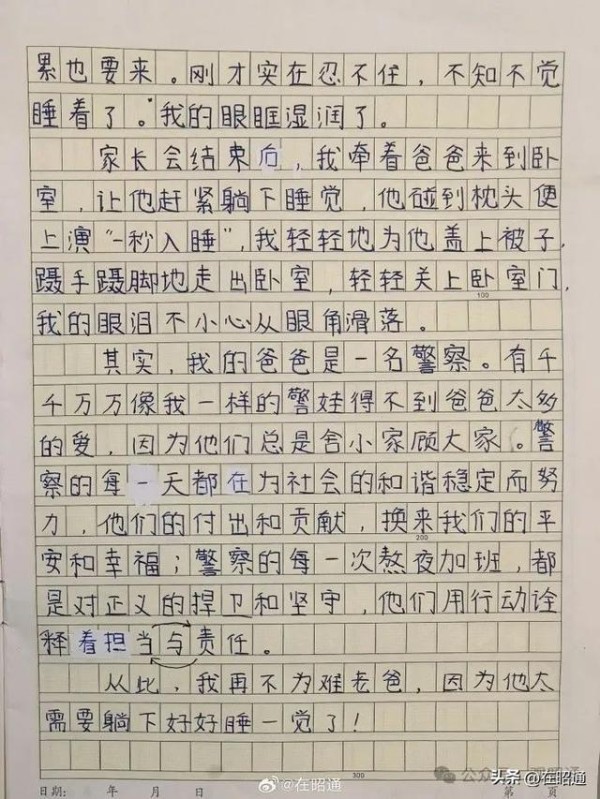 累也要来。刚才实在忍不住，不知不觉
睡着了。我的眼眶湿润了。
家长会结束后，我牵着爸爸来到卧
室，让他赶紧躺下睡觉，他碰到枕头便
上演“一秒入睡”，我轻轻地为他盖上被子，
蹑手蹑脚地走出卧室，轻轻关上卧室门，
100
我的眼泪不小心从眼角滑落。
其实，我的爸爸是一名警察。有千
千万万像我一样的警娃得不到爸爸太多
的爱，因为他们总是舍小家顾大家。警
察的每一天都在为社会的和谐稳定而努
力，他们的付出和贡献，换来我们的平
200
安和幸福；警察的每一次熬夜加班，都
是对正义的捍卫和坚守，他们用行动诠
释着担当与责任。
从此，我再不为难老爸，因为他太
需要躺下好好睡一觉了！
300
日期： 年 月 日 第 页
@在昭通
头条 @在昭通